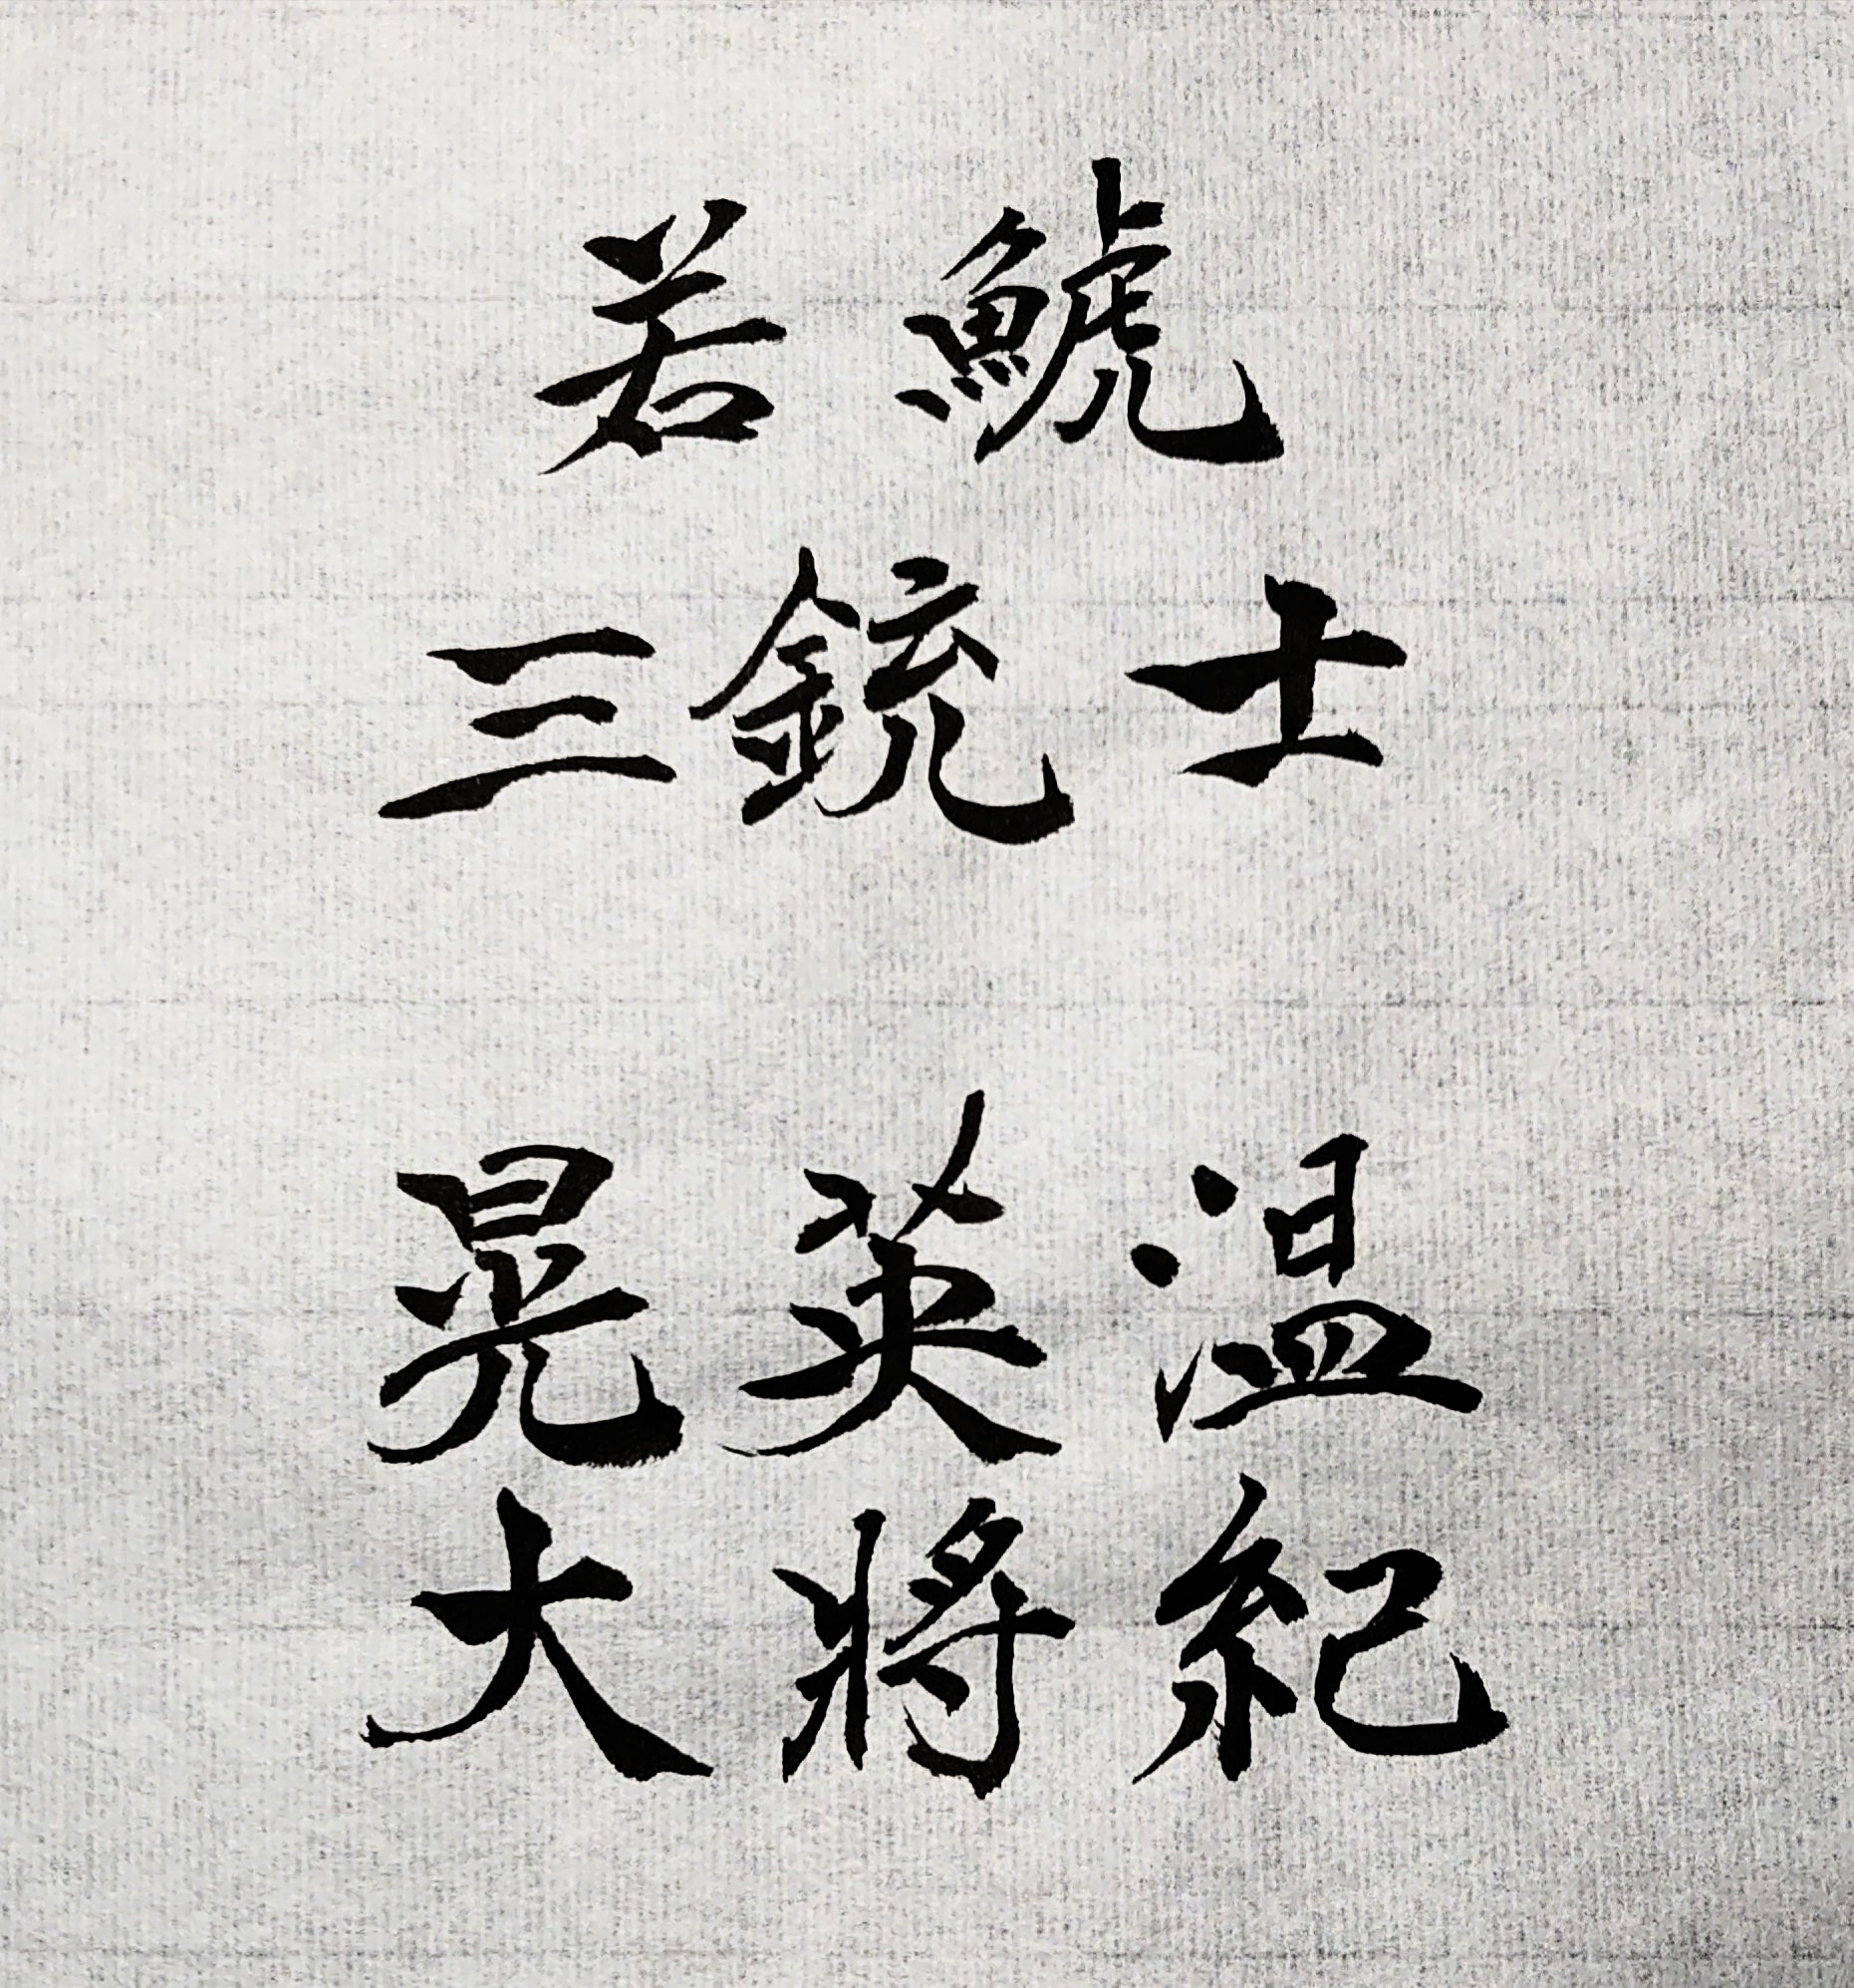 若鯱
三銃士
温紀
英將
晃大